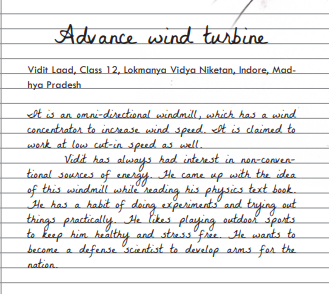 Advance wind turbine
Vidit Laad, Class 12, Lokmanya Vidya Niketan, Indore, Mad-
hya Pradesh
It is an omni-directional windmill, which has a wind
concentrator to increase wind speed. It is claimed to
work at low cut-in speed as well.
Vidit has always had interest in non-conven-
tional sources of energy. He came up with the idea
of this windmill while reading his physics text book.
He has a habit of doing experiments and trying out
things practically. He likes playing outdoor sports
to keep him healthy and stress free. He wants to
become a defense scientist to develop arms for the
nation.